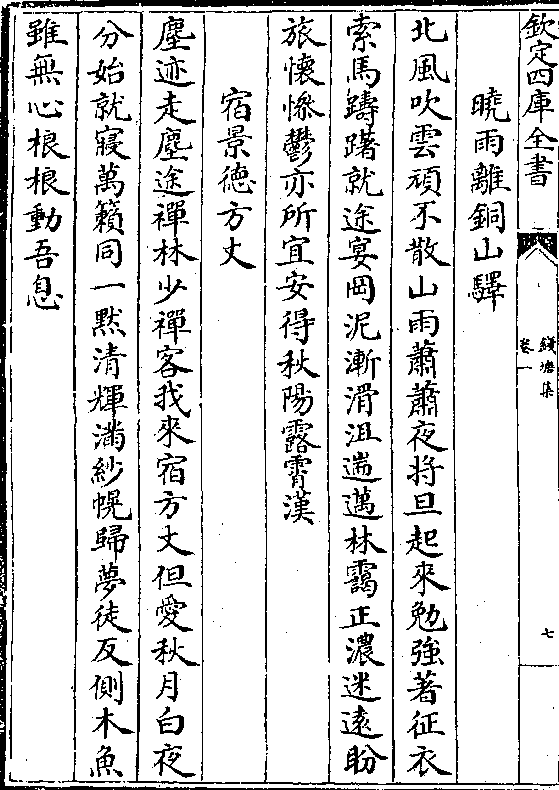 欽定四庫全書
錢塘集
卷一
七
曉雨離銅山驛
北風吹雲頑不散山雨蕭蕭夜將旦起來勉強著征衣
索馬躊躇就途宴岡泥漸滑沮遄邁林靄正濃迷遠盼
旅懷慘鬱亦所宜安得秋陽露霄漢
宿景德方丈
塵迹走塵途禪林少禪客我來宿方丈但愛秋月白夜
分始就寢萬籟同一黙清輝滿紗幌歸夢徒反側木魚
雖無心根根動吾息